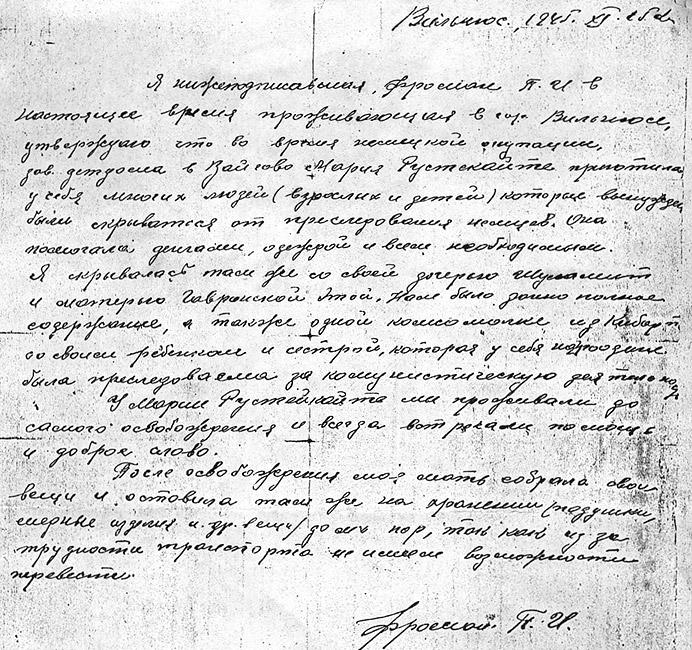 Вильнюс, 1945. XI. 25 д.
Я нижеподписавшаяся, Фроман П. И в
настоящее время проживающая в гор. Вильнюсе,
утверждаю что во время немецкой окупации,
зав. детдома в Вайгово Мария Рустекайте приютила
у себя многих людей (взрослых и детей) которые вынуждены
были скрываться от преследования немцев. Она
помогала деньгами, одеждой и всем необходимым.
Я скрывалась там же со своей дочерью Шуламит
и матерью Гавронской Этой. Нам было дано полное
содержание, а также одной комсомолке из Кибарт
со своим ребенком и сестрой, которая у себя на родине
была преследоваема за комунистическую деятельность
У Марии Рустейкайте ми проживали до
самого освобождения и всегда встречали помощь
и доброе слово.
После освобождения моя мать собрала свои
вещи и оставила там же на хранении (подушки,
изделия и др. вещи) до сих пор, так как из за
трудности транспорта не имеем возможности
перевести.
Фроман. П. И.